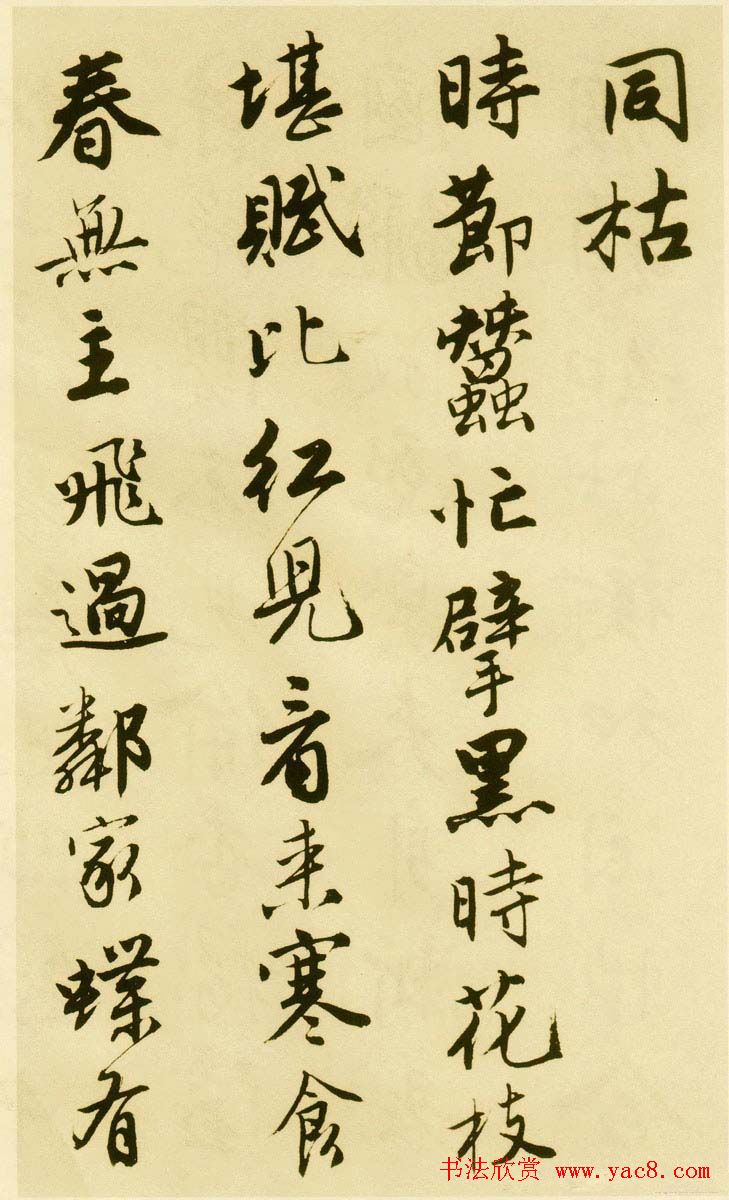 同枯
時節蠶忙擘黑時花枝
堪賦比紅兒看来寒食
春無主飛過鄰家蝶有
书法欣赏 www.yac8.com